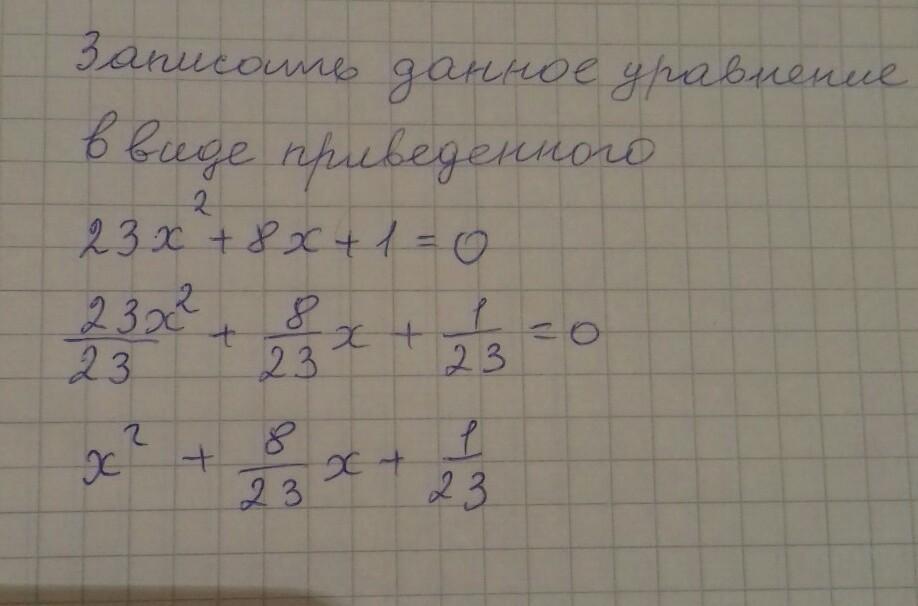 Записать данное уравнение
в виде приведенного
23x² + 8x + 1 = 0
23x²/23 + 8/23 x + 1/23 = 0
x² + 8/23 x + 1/23